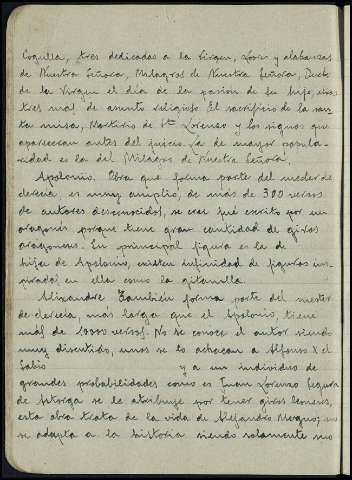 Cogulla, tres dedicadas a la Virgen, Loor y alabanzas
de Nuestra Señora, Milagros de Nuestra Señora, Duelo
de la Virgen el día de la pasión de su hijo, otras
tres mas de asunto religioso El sacrificio de la san-
ta misa, Martirio de Sn Lorenzo y los signos que
aparecerán antes del juicio. La de mayor popula-
ridad es la del Milagros de Nuestra Señora.
Apolonio. Obra que forma parte del mester de
clerecia, es muy amplio, de más de 300 versos
de autores desconocidos, se cree fué escrito por un
aragonés porque tiene gran cantidad de giros
aragoneses. Su principal figura es la de
hija de Apolonio, existen infinidad de figuras ins-
piradas en ella como la gitanilla.
Alixandre También forma parte del mester
de clerecia, más larga que el Apolonio, tiene
más de 10000 versos. No se conoce el autor siendo
muy discutido, unos se lo achacan a Alfonso X el
Sabio y a un individuo de
grandes probabilidades como es Juan Lorenzo Segura
de Astorga se le atribuye por tener giros leoneses,
esta obra trata de la vida de Alejandro Magno; no
se adapta a la historia siendo solamente uno